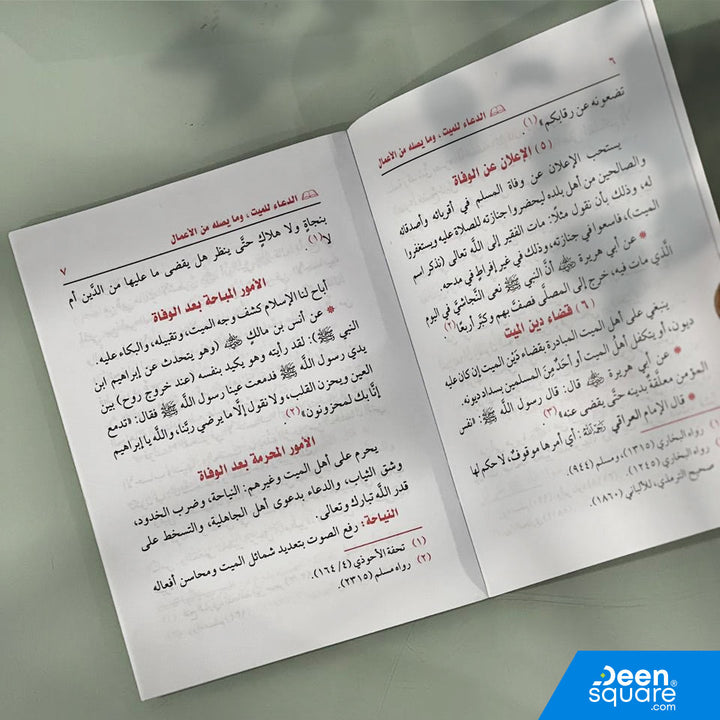 ٦
الدعاء للميت ، وما يصله من الأعمال
تضعونه عن رقابكم»(١).
(٥) الإعلان عن الوفاة
يستحب الإعلان عن وفاة المسلم في أقربائه وأصدقائه
والصالحين من أهل بلده ليحضروا جنازته للصلاة عليه ويستغفروا
له، وذلك بأن نقول مثلًا: مات الفقير إلى الله تعالى (نذكر اسم
الميت)، فاسعوا في جنازته، وذلك في غير إفراط في مدحه.
* عن أبي هريرة ﵁ أنَّ النبي ﷺ نعى النَّجاشيَّ في اليوم
الَّذي مات فيه، خرج إلى المصلَّى فصفَّ بهم وكبَّر أربعًا(٢).
(٦) قضاء دين الميت
ينبغي على أهل الميت المبادرة بقضاء دَيْن الميت إن كان عليه
ديون، أو يتكفل أهلُ الميت أو أحدٌ مِنَ المسلمين بسداد ديونه.
* عن أبي هريرة ﵁ قال: قال رسول الله ﷺ: «نفس
المؤمن معلقةٌ بدينه حتَّى يقضى عنه»(٣).
* قال الإمام العراقي ﵀: أي أمرها موقوفٌ، لا حكم لها
(١) رواه البخاري (١٣١٥)، ومسلم (٩٤٤).
رواه البخاري (١٢٤٥).
صحيح الترمذي، للألباني (١٨٦٠).
الدعاء للميت ، وما يصله من الأعمال
٧
بنجاةٍ ولا هلاكٍ حتَّى ينظر هل يقضى ما عليها من الدَّين أم
لا(١).
الأمور المباحة بعد الوفاة
أباح لنا الإسلام كشف وجه الميت، وتقبيله، والبكاء عليه.
* عن أنس بن مالكٍ ﵁ (وهو يتحدث عن إبراهيم ابن
النبي ﷺ): لقد رأيته وهو يكيد بنفسه (عند خروج روح) بين
يدي رسول الله ﷺ فدمعت عينا رسول الله ﷺ فقال: «تدمع
العين ويحزن القلب، ولا نقول إلَّا ما يرضي ربَّنا، والله يا إبراهيم
إنَّا بك لمحزونون»(٢).
الأمور المحرمة بعد الوفاة
يحرم على أهل الميت وغيرهم: النياحة، وضرب الخدود،
وشق الثياب، والدعاء بدعوى أهل الجاهلية، والتسخط على
قدر الله تبارك وتعالى.
النياحة: رفع الصوت بتعديد شمائل الميت ومحاسن أفعاله
(١) تحفة الأحوذي (٤/ ١٦٤).
(٢) رواه مسلم (٢٣١٥).
Deen
square®
.com